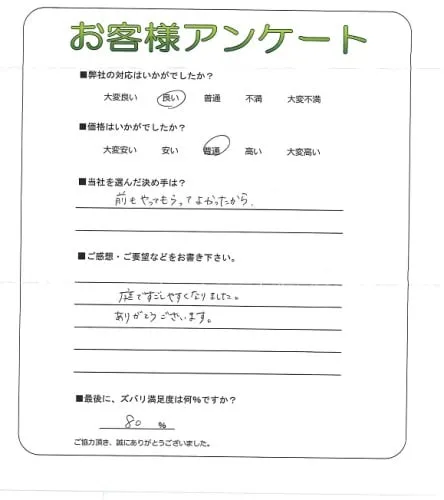 お客様アンケート
■弊社の対応はいかがでしたか？
大変良い 良い 普通 不満 大変不満
■価格はいかがでしたか？
大変安い 安い 普通 高い 大変高い
■当社を選んだ決め手は？
前もやってもらってよかったから.
■ご感想・ご要望などをお書き下さい。
庭ですごしやすくなりました。
ありがとうございます。
■最後に、ズバリ満足度は何%ですか？
80 %
ご協力頂き、誠にありがとうございました。